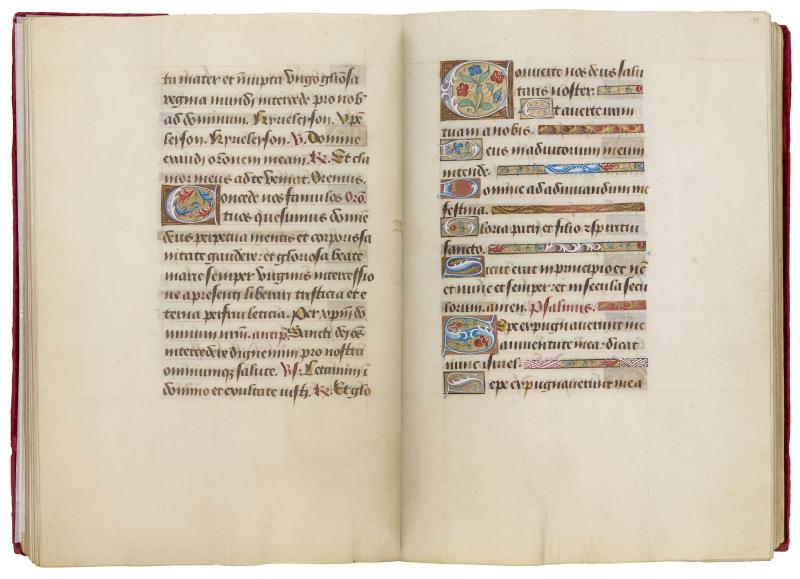 ta mater et inupta Virgo gliosa
regina mundi intercede pro nob
ad dominum. Kyrieleyson. Xpe
leyson. Kyrieleyson. V. Domine
exaudi orōnem meam. R. Et cla
mor meus ad te veniat. Oremus.
Concede nos famulos Orō.
tuos quesumus domine
deus perpetua mentis et corporis sa
nitate gaudere: et gloriosa beate
marie semper Virginis intercessio
ne a presenti liberari tristicia et e
terna perfrui leticia. Per xpm do
minum nrm. antip. Sancti dei oēs
intercedere dignemini pro nostra
omniumq; salute. Vs. Letamini ī
domino et exultate iusti. R. Et glo
94
Converte nos deus salu
taris noster.
Et averte iram
tuam a nobis.
Deus in adiutorium meum
intende.
Domine ad adiuvandum me
festina.
Gloria patri et filio et spiritui
sancto.
Sicut erat in principio et nūc
et nunc et semper: et in secula secu
lorum. amen. Psalmus.
Sepe expugnaverunt me
a iuventute mea: dicat
nunc israel.
Sepe expugnaverunt me a